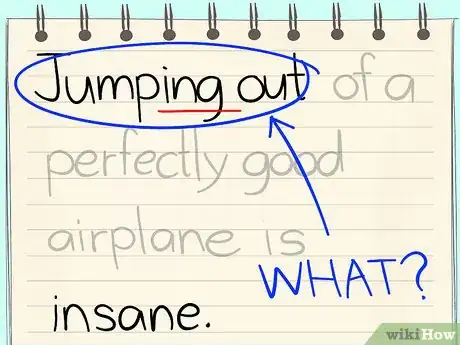 Jumping out of a
perfectly good
airplane is
WHAT?
insane.
wikiHow